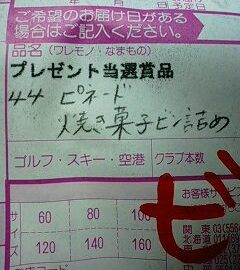 ご希望のお届け日がある
場合はご記入ください。
品名(ワレモノ・なまもの)
プレゼント当選賞品
44 ピネード
焼き菓子ビン詰め
ゴルフ・スキー・空港 クラブ本数
お客様サービ
サイズ
60 80 100
120 140 160
関東 03(55
北海道 011(
東